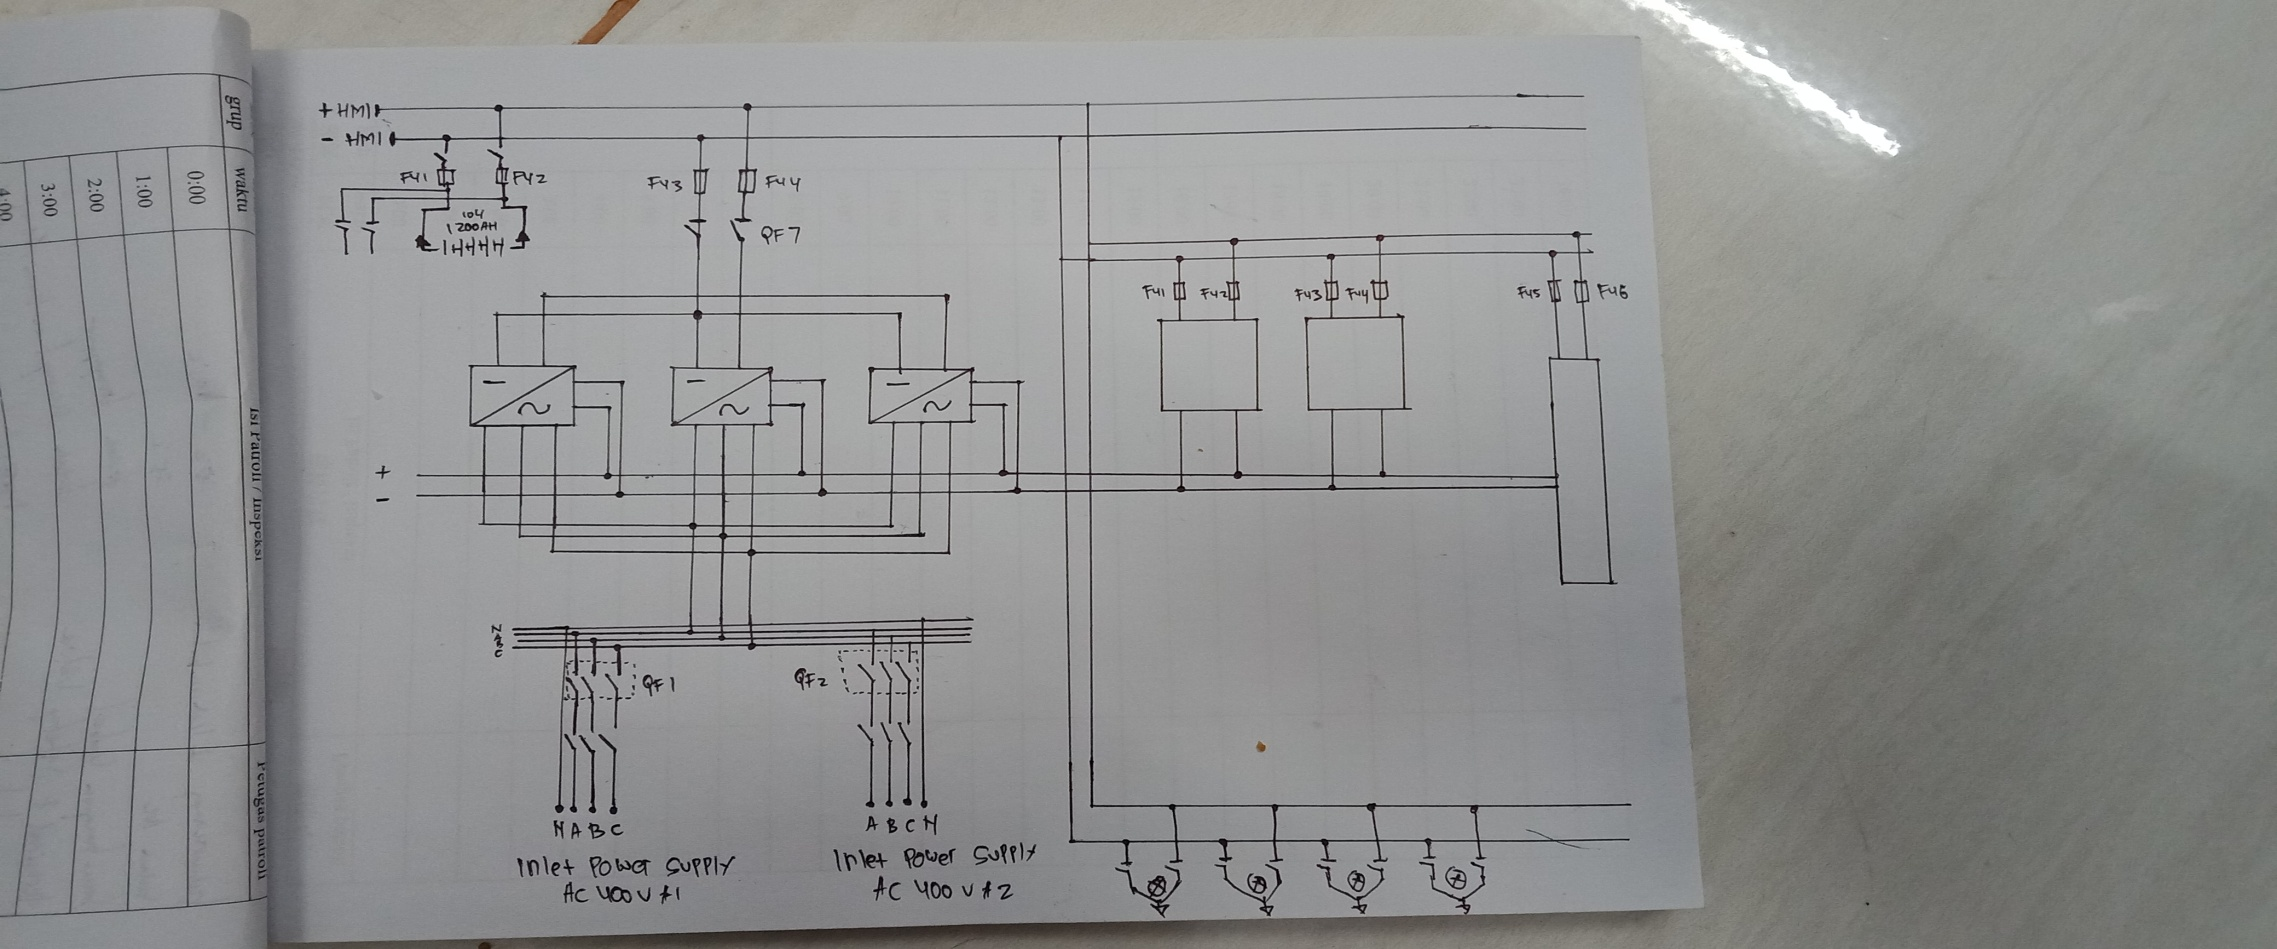 grup
waktu
0:00
1:00
2:00
3:00
4:00
Isi Patroli / Inspeksi
Petugas patroli
+ HM1
- HM1
FU1
FU2
104
1200AH
FU3
FU4
QF7
FU1
FU2
FU3
FU4
FU5
FU6
+
-
N
A
B
C
QF1
QF2
N A B C
A B C N
Inlet Power Supply
AC 400V #1
Inlet Power Supply
AC 400V #2